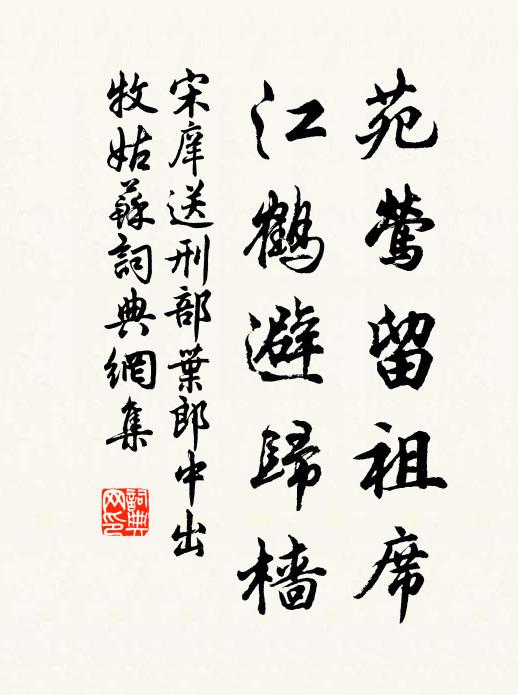 苑鶯留祖席
江鶴避歸檣
宋庠送刑部葉郎中出
牧姑蘇詞典網集
詞典
网印